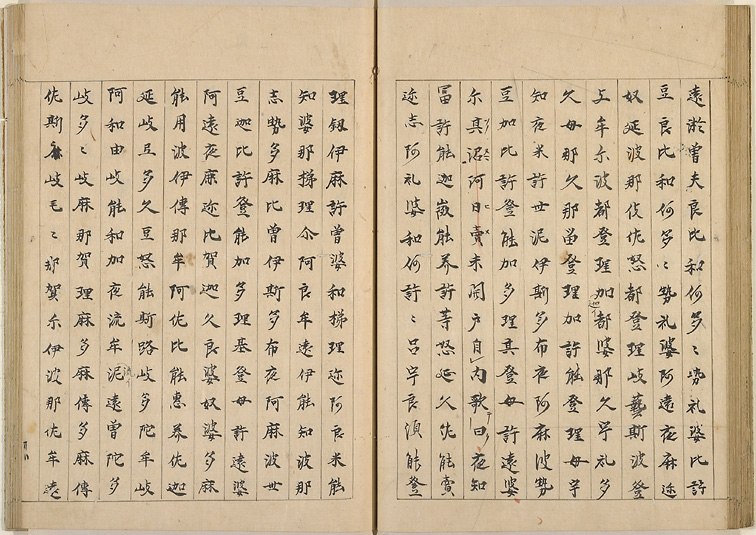 遠淤曽夫良比和何多〻勢礼婆比許
豆良比和何多〻勢礼婆阿遠夜麻迩
奴延波那伎佐怒都登理岐藝斯波登
与牟尓波都登理加都婆那久宇礼多
久母那久那留登理加許能登理母宇
知夜米許世泥伊斯多布夜阿麻波勢
豆加比許登能加多理其登母許遠婆
尓其沼河日賣未開戸自内歌曰夜知
富許能迦微能美許等怒延久佐能賣
迩志阿礼婆和何許〻呂宇良須能登
理叙伊麻許曽婆和杼理迩阿良米能
知婆那杼理尓阿良牟遠伊能知波那
志勢多麻比曽伊斯多布夜阿麻波世
豆迦比許登能加多理基登母許遠婆
阿遠夜麻迩比賀迦久良婆奴婆多麻
能用波伊傳那牟阿佐比能恵美佐迦
延岐豆多久豆怒能斯路岐多陀牟岐
阿和由岐能和加夜流牟泥遠曽陀多
岐多〻岐麻那賀理麻多麻傳多麻傳
佐斯麻岐毛〻那賀尓伊波那佐牟遠